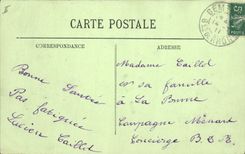 CARTE POSTALE
CORRESPONDANCE
ADRESSE
Bonne Santée
Pas fatiguée
Lucien Caillol
Madame Caillol
et sa famille
à La
Campagne Ménard
Concierge B. d. R.